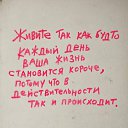 Живите так как будто
каждый день
ваша жизнь
становится короче,
потому что в
действительности
так и происходит.